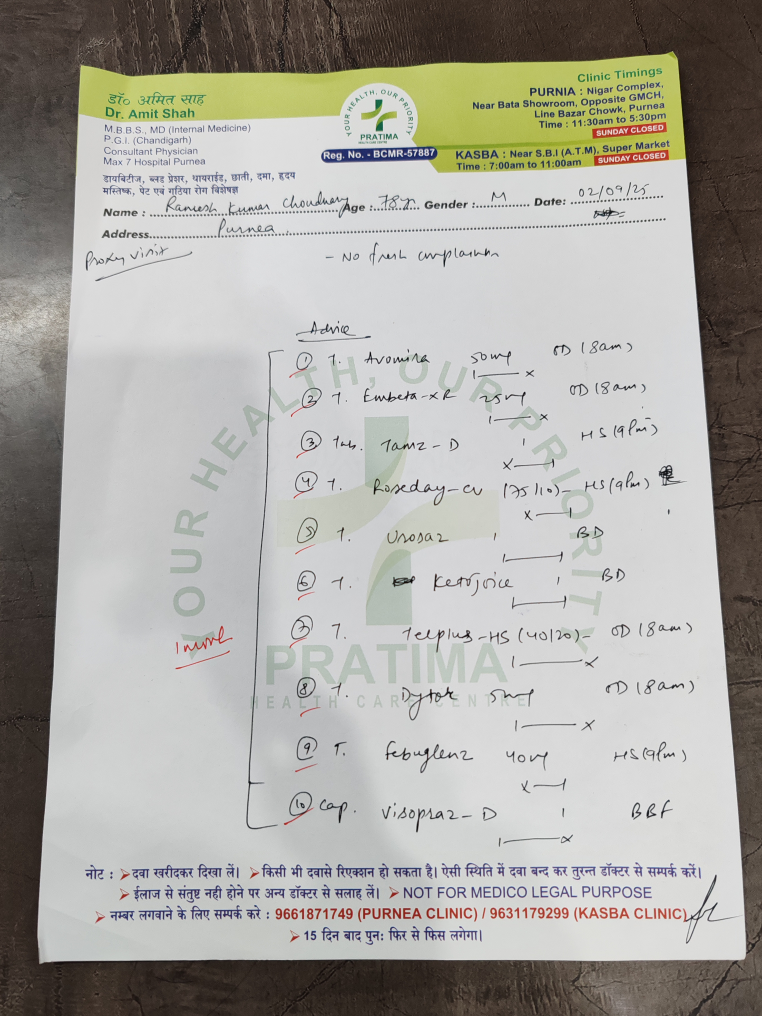 डॉ० अमित साह
Dr. Amit Shah
M.B.B.S., MD (Internal Medicine)
P.G.I. (Chandigarh)
Consultant Physician
Max 7 Hospital Purnea
डायबिटीज, ब्लड प्रेशर, थायराईड, छाती, दमा, हृदय
मस्तिष्क, पेट एवं गठिया रोग विशेषज्ञ
YOUR HEALTH, OUR PRIORITY
PRATIMA
HEALTH CARE CENTRE
Reg. No. - BCMR-57887
Clinic Timings
PURNIA : Nigar Complex,
Near Bata Showroom, Opposite GMCH,
Line Bazar Chowk, Purnea
Time : 11:30am to 5:30pm
SUNDAY CLOSED
KASBA : Near S.B.I (A.T.M), Super Market
Time : 7:00am to 11:00am SUNDAY CLOSED
Name : Ramesh Kumar Choudhary Age : 78yr Gender : M Date: 02/09/25
Address Purnea
Proxy visit - No fresh complaints
Advice
1 T. Avomira 50mg OD (8am)
1 — x
2 T. Embeta-XR 25mg OD (8am)
1 — x
3 Tab. Tamz-D 1 HS (9pm)
x — 1
4 T. Roseday-CV (75/10) - HS (9pm)
x — 1
5 T. Urosaz 1 BD
1 — 1
6 T. Ketojoice 1 BD
1 — 1
7 T. Telplus-HS (40/20) - OD (8am)
1 — x
8 T. Dytor 5mg OD (8am)
1 — x
9 T. Febuglenz 40mg HS (9pm)
x — 1
10 Cap. Visopraz-D 1 BBF
1 — x
YOUR HEALTH, OUR PRIORITY
PRATIMA
HEALTH CARE CENTRE
नोट : दवा खरीदकर दिखा लें। किसी भी दवासे रिएक्शन हो सकता है। ऐसी स्थिति में दवा बन्द कर तुरन्त डॉक्टर से सम्पर्क करें।
ईलाज से संतुष्ट नही होने पर अन्य डॉक्टर से सलाह लें। NOT FOR MEDICO LEGAL PURPOSE
नम्बर लगवाने के लिए सम्पर्क करे : 9661871749 (PURNEA CLINIC) / 9631179299 (KASBA CLINIC)
15 दिन बाद पुन: फिर से फिस लगेगा।